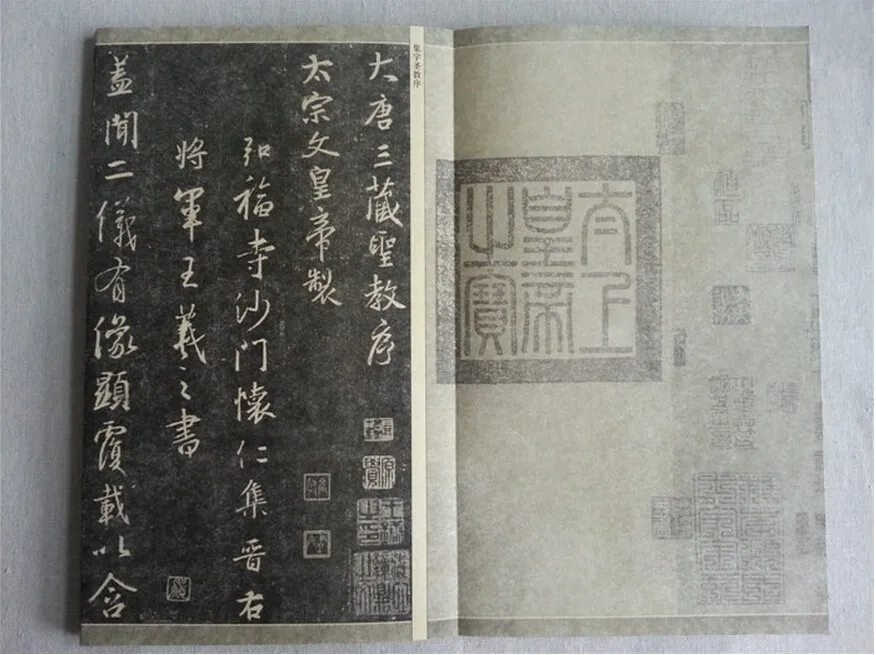 太上
皇帝
之寶
集字圣教序
大唐三藏聖教序
太宗文皇帝製
弘福寺沙門懷仁集晉右
將軍王羲之書
蓋聞二儀有像顯覆載以含